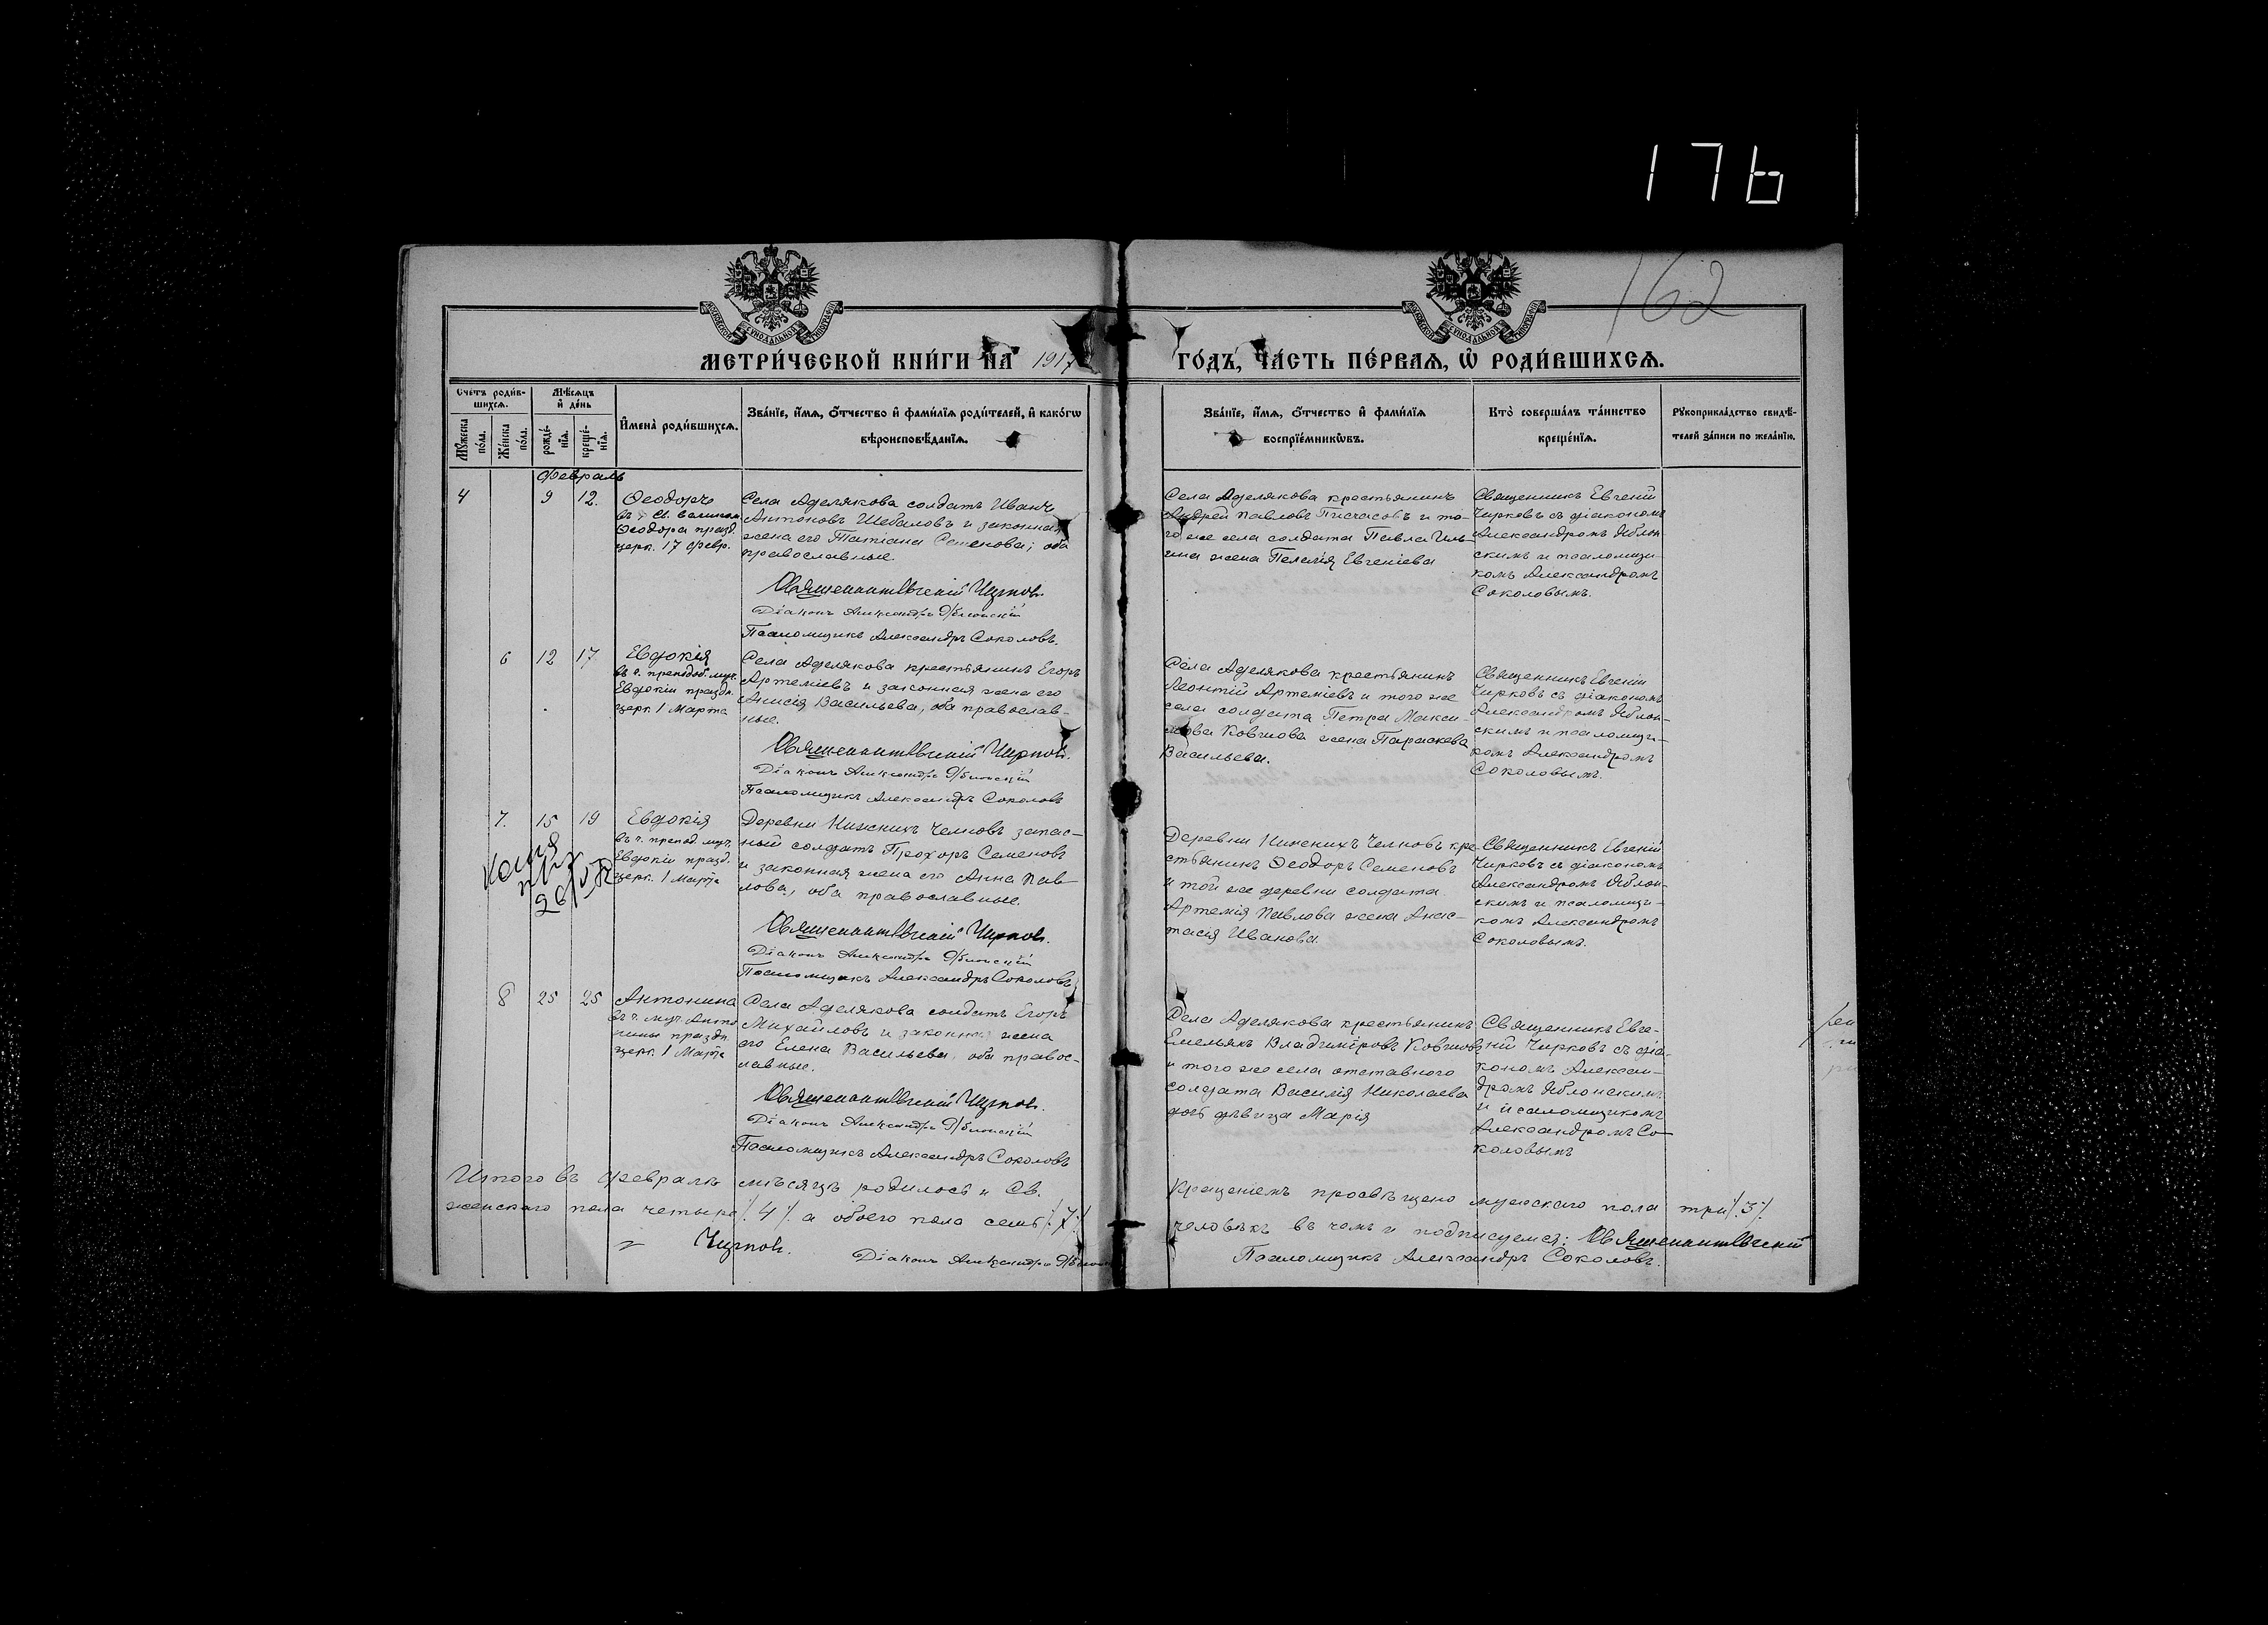 176
162
МЕТРИ́ЧЕСКОЙ КНИ́ГИ НА 1917
ГО́ДЪ, ЧА́СТЬ ПЕ́РВАЯ, Ѿ РОДИ́ВШИХСЯ.
Счетъ роди́вшихся.
Мужеска пола.
Же́нска по́ла.
Мѣсяцъ и де́нь
рожде́нїя.
креще́нїя.
Имена̀ роди́вшихся.
Зва́нїе, и́мя, о́тчество и фами́лїя роди́телей, и како́гѡ
вѣроисповѣ́данїя.
Зва́нїе, и́мя, о́тчество и фами́лїя
воспрїе́мникѡвъ.
Кто̀ соверша́лъ та́инство
креще́нїя.
Рукоприкла́дство свидѣ́-
телей за́писи по жела́нїю.
Февраль
4
9
12.
Ѳеодоръ
Ѳеодора празд.
церк. 17 Февр.
Села Аделякова солдатъ Иванъ
Антоновъ Шебаловъ и законная
жена его Татіана Семенова; оба
православные.
Священникъ Евгеній Чирковъ.
Діаконъ Александръ Яблонскій
Псаломщикъ Александръ Соколовъ.
Села Аделякова крестьянинъ
Андрей Павловъ Писчасовъ и то-
го же села солдата Павла Иль-
ина жена Пелагія Евгеніева
Священникъ Евгеній
Чирковъ съ діакономъ
Александромъ Яблон-
скимъ и псаломщи-
комъ Александромъ
Соколовымъ.
6
12
17
Евдокія
въ ч. преподоб. муч.
Евдокіи праздн.
церк. 1 Марта
Села Аделякова крестьянинъ Егоръ
Артеміевъ и законная жена его
Анисія Васильева, оба православ-
ные.
Священникъ Евгеній Чирковъ.
Діаконъ Александръ Яблонскій
Псаломщикъ Александръ Соколовъ
Села Аделякова крестьянинъ
Леонтій Артеміевъ и того же
села солдата Петра Макси-
мова Ковшова жена Параскева
Васильева.
Священникъ Евгеній
Чирковъ съ діакономъ
Александромъ Яблон-
скимъ и псаломщи-
комъ Александромъ
Соколовымъ.
7.
15
19
Евдокія
въ ч. препод. муч.
Евдокіи празд.
церк. 1 Марта
Деревни Нижнихъ Челновъ запас-
ный солдатъ Прохоръ Семеновъ
и законная жена его Анна Пав-
лова, оба православные.
Священникъ Евгеній Чирковъ.
Діаконъ Александръ Яблонскій
Псаломщикъ Александръ Соколовъ
Деревни Нижнихъ Челновъ кре-
стьянинъ Ѳеодоръ Семеновъ
и той же деревни солдата
Артемія Павлова жена Анас-
тасія Иванова.
Священникъ Евгеній
Чирковъ съ діакономъ
Александромъ Яблон-
скимъ и псаломщи-
комъ Александромъ
Соколовымъ.
8
25
25
Антонина
въ ч. муч. Анто
нины праздн.
церк. 1 Марта
Села Аделякова солдатъ Егоръ
Михайловъ и законная жена
его Елена Васильева, оба правос-
лавные.
Священникъ Евгеній Чирковъ.
Діаконъ Александръ Яблонскій
Псаломщикъ Александръ Соколовъ
Села Аделякова крестьянинъ
Емельянъ Владиміровъ Ковшовъ
и того же села отставного
солдата Василія Николаева
дочь дѣвица Марія
Священникъ Евге-
ній Чирковъ съ діа-
кономъ Алексан-
дромъ Яблонскимъ
и псаломщикомъ
Александромъ Со-
коловымъ
Итого въ Февралѣ мѣсяцѣ родилось и Св. Крещеніемъ просвѣщено мужскаго пола три /.3./.
женскаго пола четыре /.4./. а обоего пола семь /.7./. человѣкъ въ чемъ и подписуемся: Священникъ Евгеній
Чирковъ. Діаконъ Александръ Псаломщикъ Александръ Соколовъ.